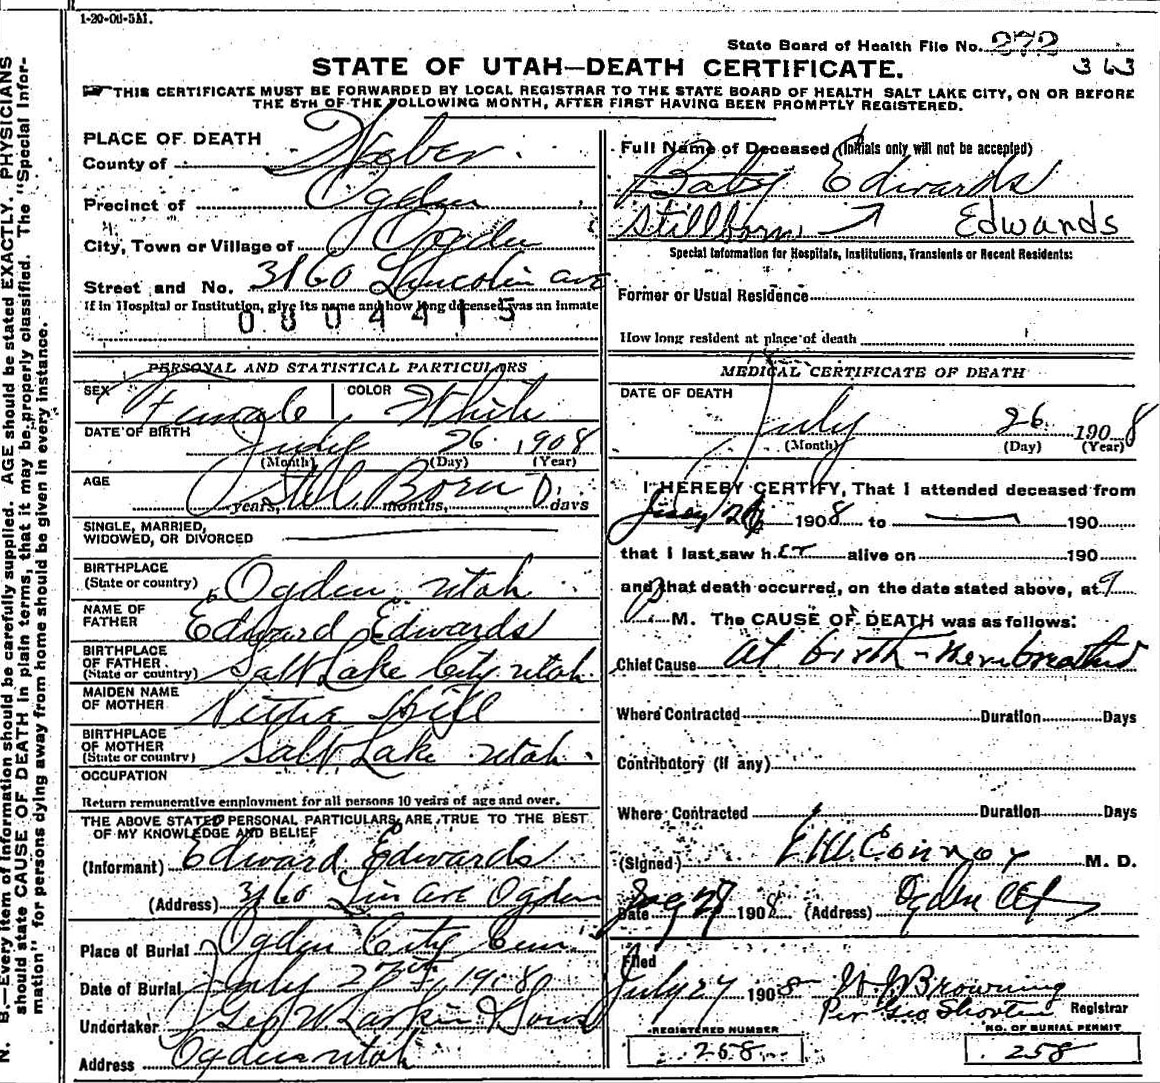 1-20-00-5M.
State Board of Health File No. 272
363
STATE OF UTAH—DEATH CERTIFICATE.
THIS CERTIFICATE MUST BE FORWARDED BY LOCAL REGISTRAR TO THE STATE BOARD OF HEALTH SALT LAKE CITY, ON OR BEFORE
THE 5TH OF THE FOLLOWING MONTH, AFTER FIRST HAVING BEEN PROMPTLY REGISTERED.
PLACE OF DEATH
County of Weber
Precinct of Ogden
City, Town or Village of Ogden
Street and No. 3160 Lincoln ave
If in Hospital or Institution, give its name and how long deceased was an inmate
0804415
PERSONAL AND STATISTICAL PARTICULARS
SEX Female COLOR White
DATE OF BIRTH July 26 1908
(Month) (Day) (Year)
AGE Stil Born
years, months, days
SINGLE, MARRIED,
WIDOWED, OR DIVORCED
BIRTHPLACE
(State or country) Ogden utah
NAME OF
FATHER Edward Edwards
BIRTHPLACE
OF FATHER
(State or country) Salt Lake City utah
MAIDEN NAME
OF MOTHER Hill
BIRTHPLACE
OF MOTHER
(State or country) Salt Lake utah
OCCUPATION
Return remunerative employment for all persons 10 years of age and over.
THE ABOVE STATED PERSONAL PARTICULARS ARE TRUE TO THE BEST
OF MY KNOWLEDGE AND BELIEF
(Informant) Edward Edwards
(Address) 3160 Lin ave Ogden
Place of Burial Ogden City Cem
Date of Burial July 27th, 1908
Undertaker Geo W Larkin & Sons
Address Ogden utah
Full Name of Deceased (Initials only will not be accepted)
Baby Edwards
Stillborn Edwards
Special Information for Hospitals, Institutions, Transients or Recent Residents:
Former or Usual Residence
How long resident at place of death
MEDICAL CERTIFICATE OF DEATH
DATE OF DEATH
July 26 1908
(Month) (Day) (Year)
I HEREBY CERTIFY, That I attended deceased from
July 26 1908 to 190
that I last saw her alive on 190
and that death occurred, on the date stated above, at 9
M. The CAUSE OF DEATH was as follows:
Chief Cause at birth - never breathed
Where Contracted Duration Days
Contributory (if any)
Where Contracted Duration Days
(Signed) M. D.
Date 1908 (Address) Ogden
Filed
July 27 1908 Browning
Per Geo Registrar
REGISTERED NUMBER
258
NO. OF BURIAL PERMIT
258
N. B.—Every item of information should be carefully supplied. AGE should be stated EXACTLY. PHYSICIANS
should state CAUSE OF DEATH in plain terms, that it may be properly classified. The "Special Infor-
mation" for persons dying away from home should be given in every instance.